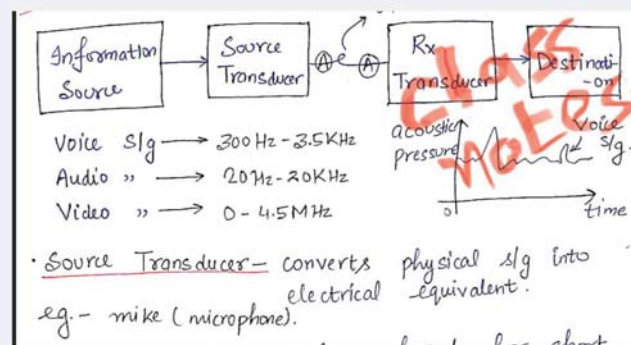 Information
Source
Source
Transducer
A
A
Rx
Transducer
Destinati-
-on
Class
Notes
Voice s/g → 300Hz-3.5KHz
Audio " → 20Hz-20KHz
Video " → 0-4.5MHz
acoustic
pressure
Voice
s/g.
0
time
· Source Transducer- converts physical s/g into
electrical equivalent.
eg.- mike (microphone).